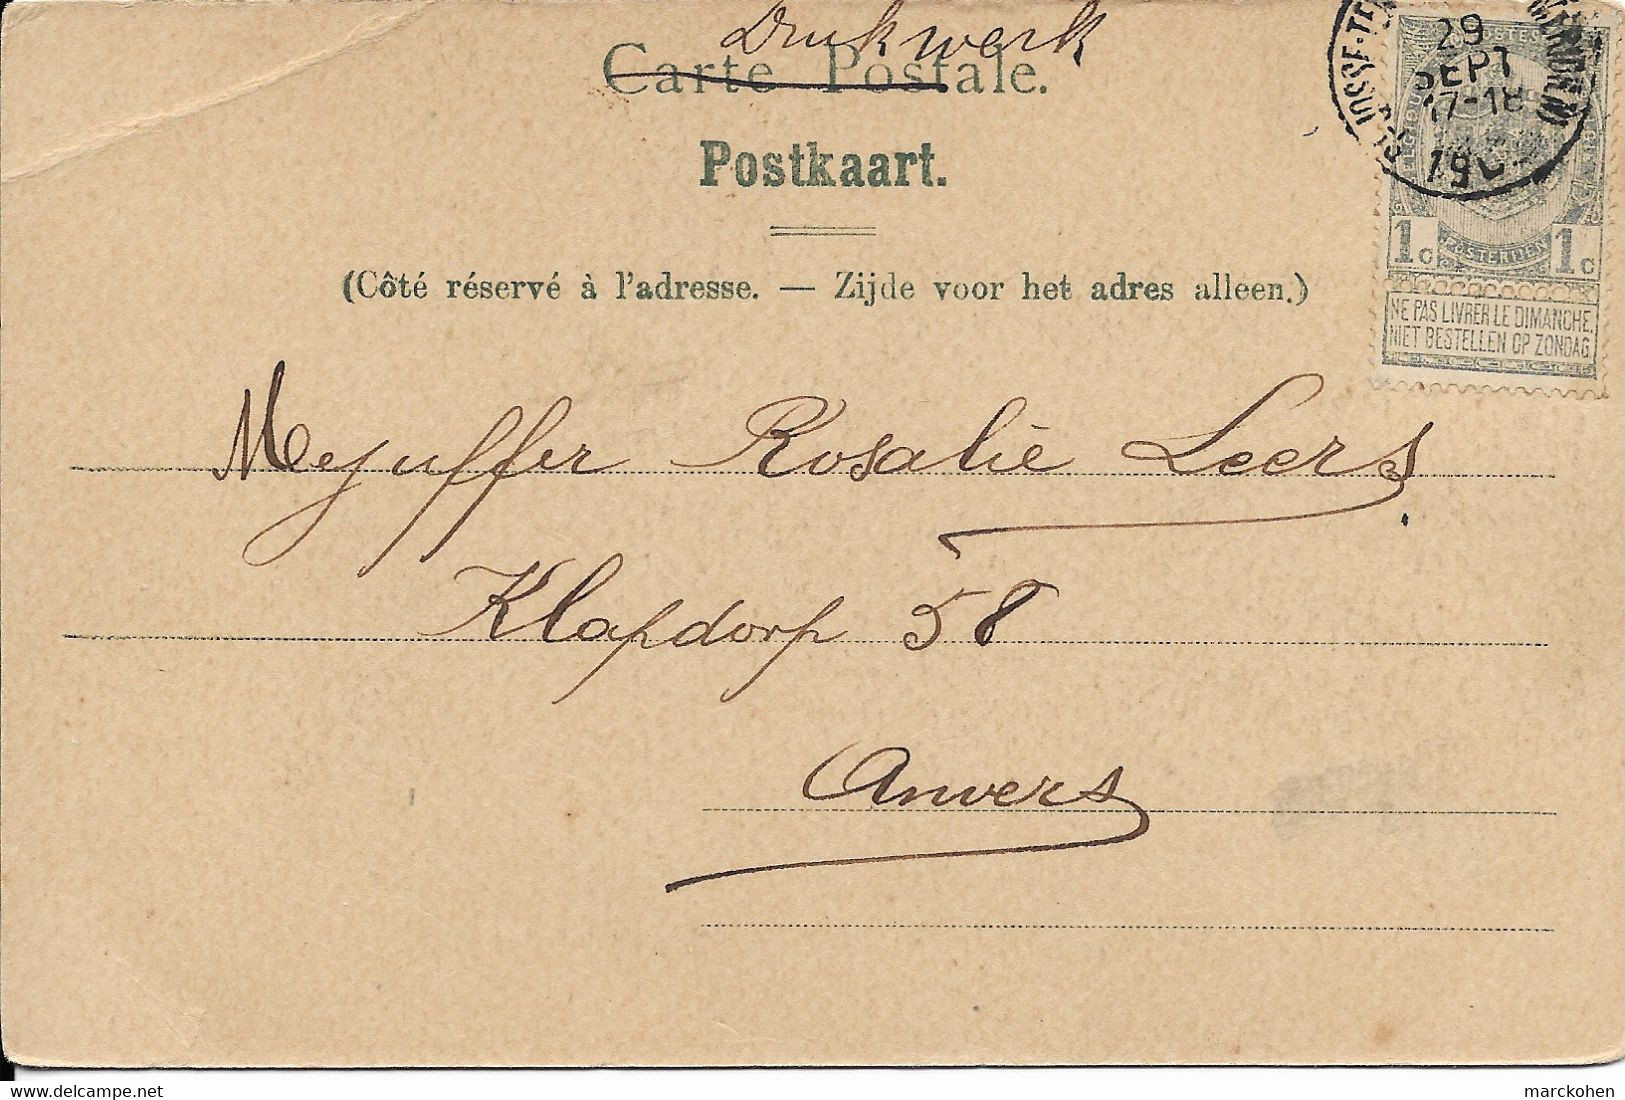 Drukwerk
Carte Postale.
Postkaart.
(Côté réservé à l'adresse. — Zijde voor het adres alleen.)
29
SEPT
17-18
POSTES
1c POSTERIJEN 1c
NE PAS LIVRER LE DIMANCHE.
NIET BESTELLEN OP ZONDAG
Mejuffer Rosalie Leers
Klapdorp 58
Anvers
marckohen